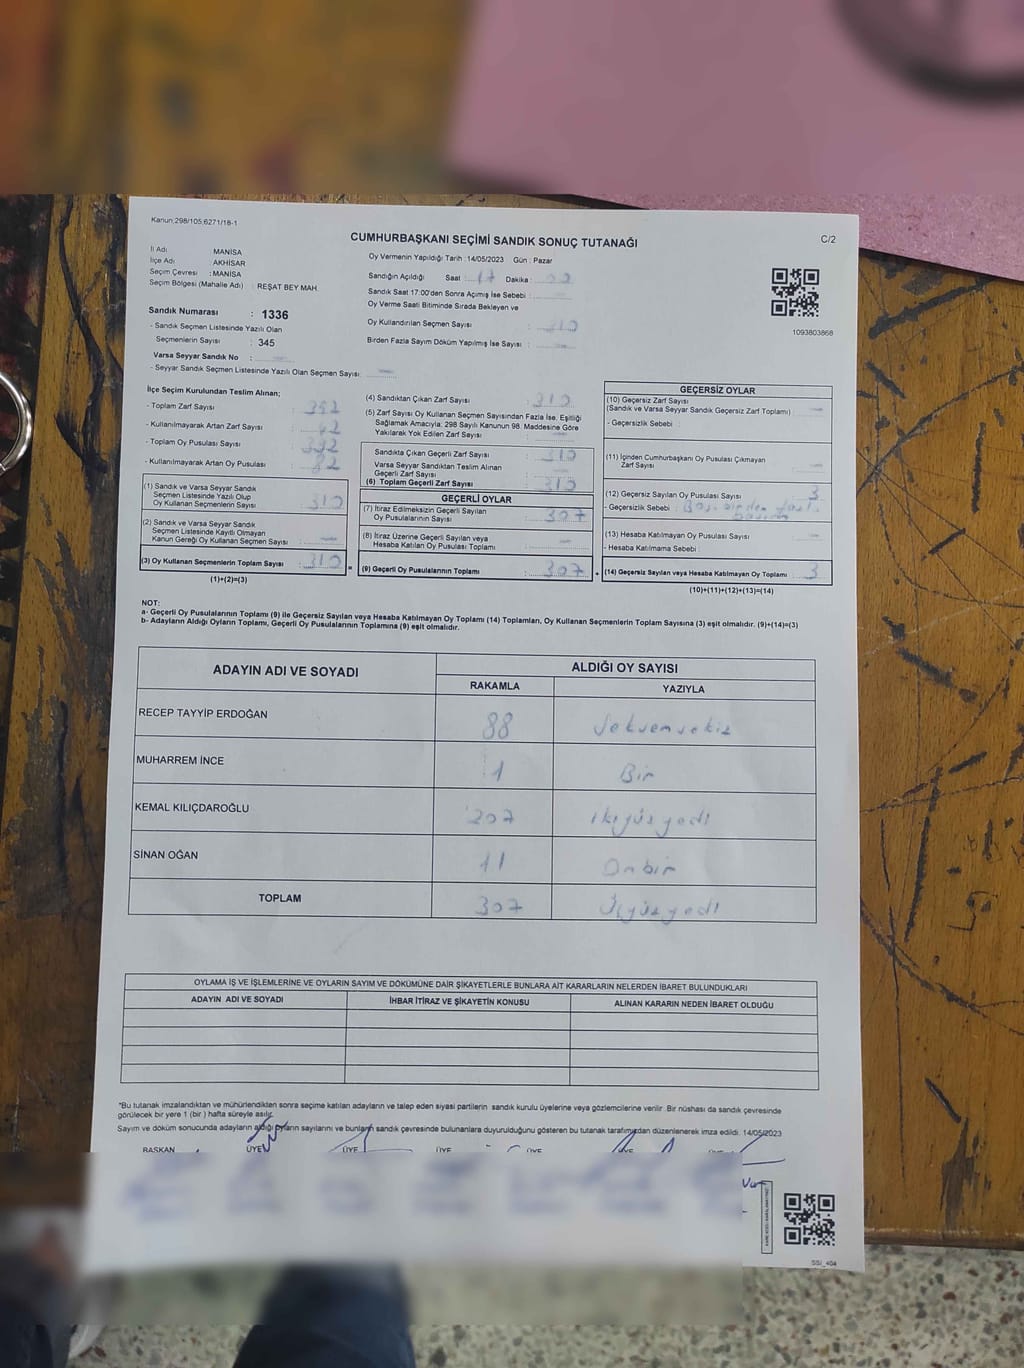 Kanun:298/105,6271/18-1
CUMHURBAŞKANI SEÇİMİ SANDIK SONUÇ TUTANAĞI
C/2
İl Adı MANİSA
İlçe Adı AKHİSAR
Seçim Çevresi : MANİSA
Seçim Bölgesi (Mahalle Adı) : REŞAT BEY MAH.
Oy Vermenin Yapıldığı Tarih : 14/05/2023 Gün : Pazar
Sandığın Açıldığı Saat : 17 Dakika :
Sandık Saat 17:00'den Sonra Açılmış İse Sebebi :
Oy Verme Saati Bitiminde Sırada Bekleyen ve
Oy Kullandırılan Seçmen Sayısı : 310
Birden Fazla Sayım Döküm Yapılmış İse Sayısı :
1093803868
Sandık Numarası : 1336
- Sandık Seçmen Listesinde Yazılı Olan
Seçmenlerin Sayısı : 345
Varsa Seyyar Sandık No :
- Seyyar Sandık Seçmen Listesinde Yazılı Olan Seçmen Sayısı:
İlçe Seçim Kurulundan Teslim Alınan;
- Toplam Zarf Sayısı :
- Kullanılmayarak Artan Zarf Sayısı :
- Toplam Oy Pusulası Sayısı :
- Kullanılmayarak Artan Oy Pusulası : 82
(1) Sandık ve Varsa Seyyar Sandık
Seçmen Listesinde Yazılı Olup
Oy Kullanan Seçmenlerin Sayısı : 310
(2) Sandık ve Varsa Seyyar Sandık
Seçmen Listesinde Kayıtlı Olmayan
Kanun Gereği Oy Kullanan Seçmen Sayısı :
(3) Oy Kullanan Seçmenlerin Toplam Sayısı : 310
(1)+(2)=(3)
(4) Sandıktan Çıkan Zarf Sayısı : 310
(5) Zarf Sayısı Oy Kullanan Seçmen Sayısından Fazla İse, Eşitliği
Sağlamak Amacıyla; 298 Sayılı Kanunun 98. Maddesine Göre
Yakılarak Yok Edilen Zarf Sayısı :
Sandıkta Çıkan Geçerli Zarf Sayısı : 310
Varsa Seyyar Sandıktan Teslim Alınan
Geçerli Zarf Sayısı :
(6) Toplam Geçerli Zarf Sayısı : 310
GEÇERLİ OYLAR
(7) İtiraz Edilmeksizin Geçerli Sayılan
Oy Pusulalarının Sayısı : 307
(8) İtiraz Üzerine Geçerli Sayılan veya
Hesaba Katılan Oy Pusulası Toplamı :
(9) Geçerli Oy Pusulalarının Toplamı : 307
GEÇERSİZ OYLAR
(10) Geçersiz Zarf Sayısı
(Sandık ve Varsa Seyyar Sandık Geçersiz Zarf Toplamı) :
- Geçersizlik Sebebi :
(11) İçinden Cumhurbaşkanı Oy Pusulası Çıkmayan
Zarf Sayısı :
(12) Geçersiz Sayılan Oy Pusulası Sayısı : 3
- Geçersizlik Sebebi :
(13) Hesaba Katılmayan Oy Pusulası Sayısı :
- Hesaba Katılmama Sebebi :
(14) Geçersiz Sayılan veya Hesaba Katılmayan Oy Toplamı : 3
(10)+(11)+(12)+(13)=(14)
NOT:
a- Geçerli Oy Pusulalarının Toplamı (9) ile Geçersiz Sayılan veya Hesaba Katılmayan Oy Toplamı (14) Toplamları, Oy Kullanan Seçmenlerin Toplam Sayısına (3) eşit olmalıdır. (9)+(14)=(3)
b- Adayların Aldığı Oyların Toplamı, Geçerli Oy Pusulalarının Toplamına (9) eşit olmalıdır.
ADAYIN ADI VE SOYADI
ALDIĞI OY SAYISI
RAKAMLA YAZIYLA
RECEP TAYYİP ERDOĞAN 88 Seksensekiz
MUHARREM İNCE 1 Bir
KEMAL KILIÇDAROĞLU 207 ikiyüzyedi
SİNAN OĞAN 11 Onbir
TOPLAM 307 Üçyüzyedi
OYLAMA İŞ VE İŞLEMLERİNE VE OYLARIN SAYIM VE DÖKÜMÜNE DAİR ŞİKAYETLERLE BUNLARA AİT KARARLARIN NELERDEN İBARET BULUNDUKLARI
ADAYIN ADI VE SOYADI İHBAR İTİRAZ VE ŞİKAYETİN KONUSU ALINAN KARARIN NEDEN İBARET OLDUĞU
*Bu tutanak imzalandıktan ve mühürlendikten sonra seçime katılan adayların ve talep eden siyasi partilerin sandık kurulu üyelerine veya gözlemcilerine verilir. Bir nüshası da sandık çevresinde
görülecek bir yere 1 (bir) hafta süreyle asılır.
Sayım ve döküm sonucunda adayların aldığı oyların sayılarını ve bunların sandık çevresinde bulunanlara duyurulduğunu gösteren bu tutanak tarafımızdan düzenlenerek imza edildi. 14/05/2023
BAŞKAN ÜYE ÜYE ÜYE ÜYE ÜYE
SSİ_404